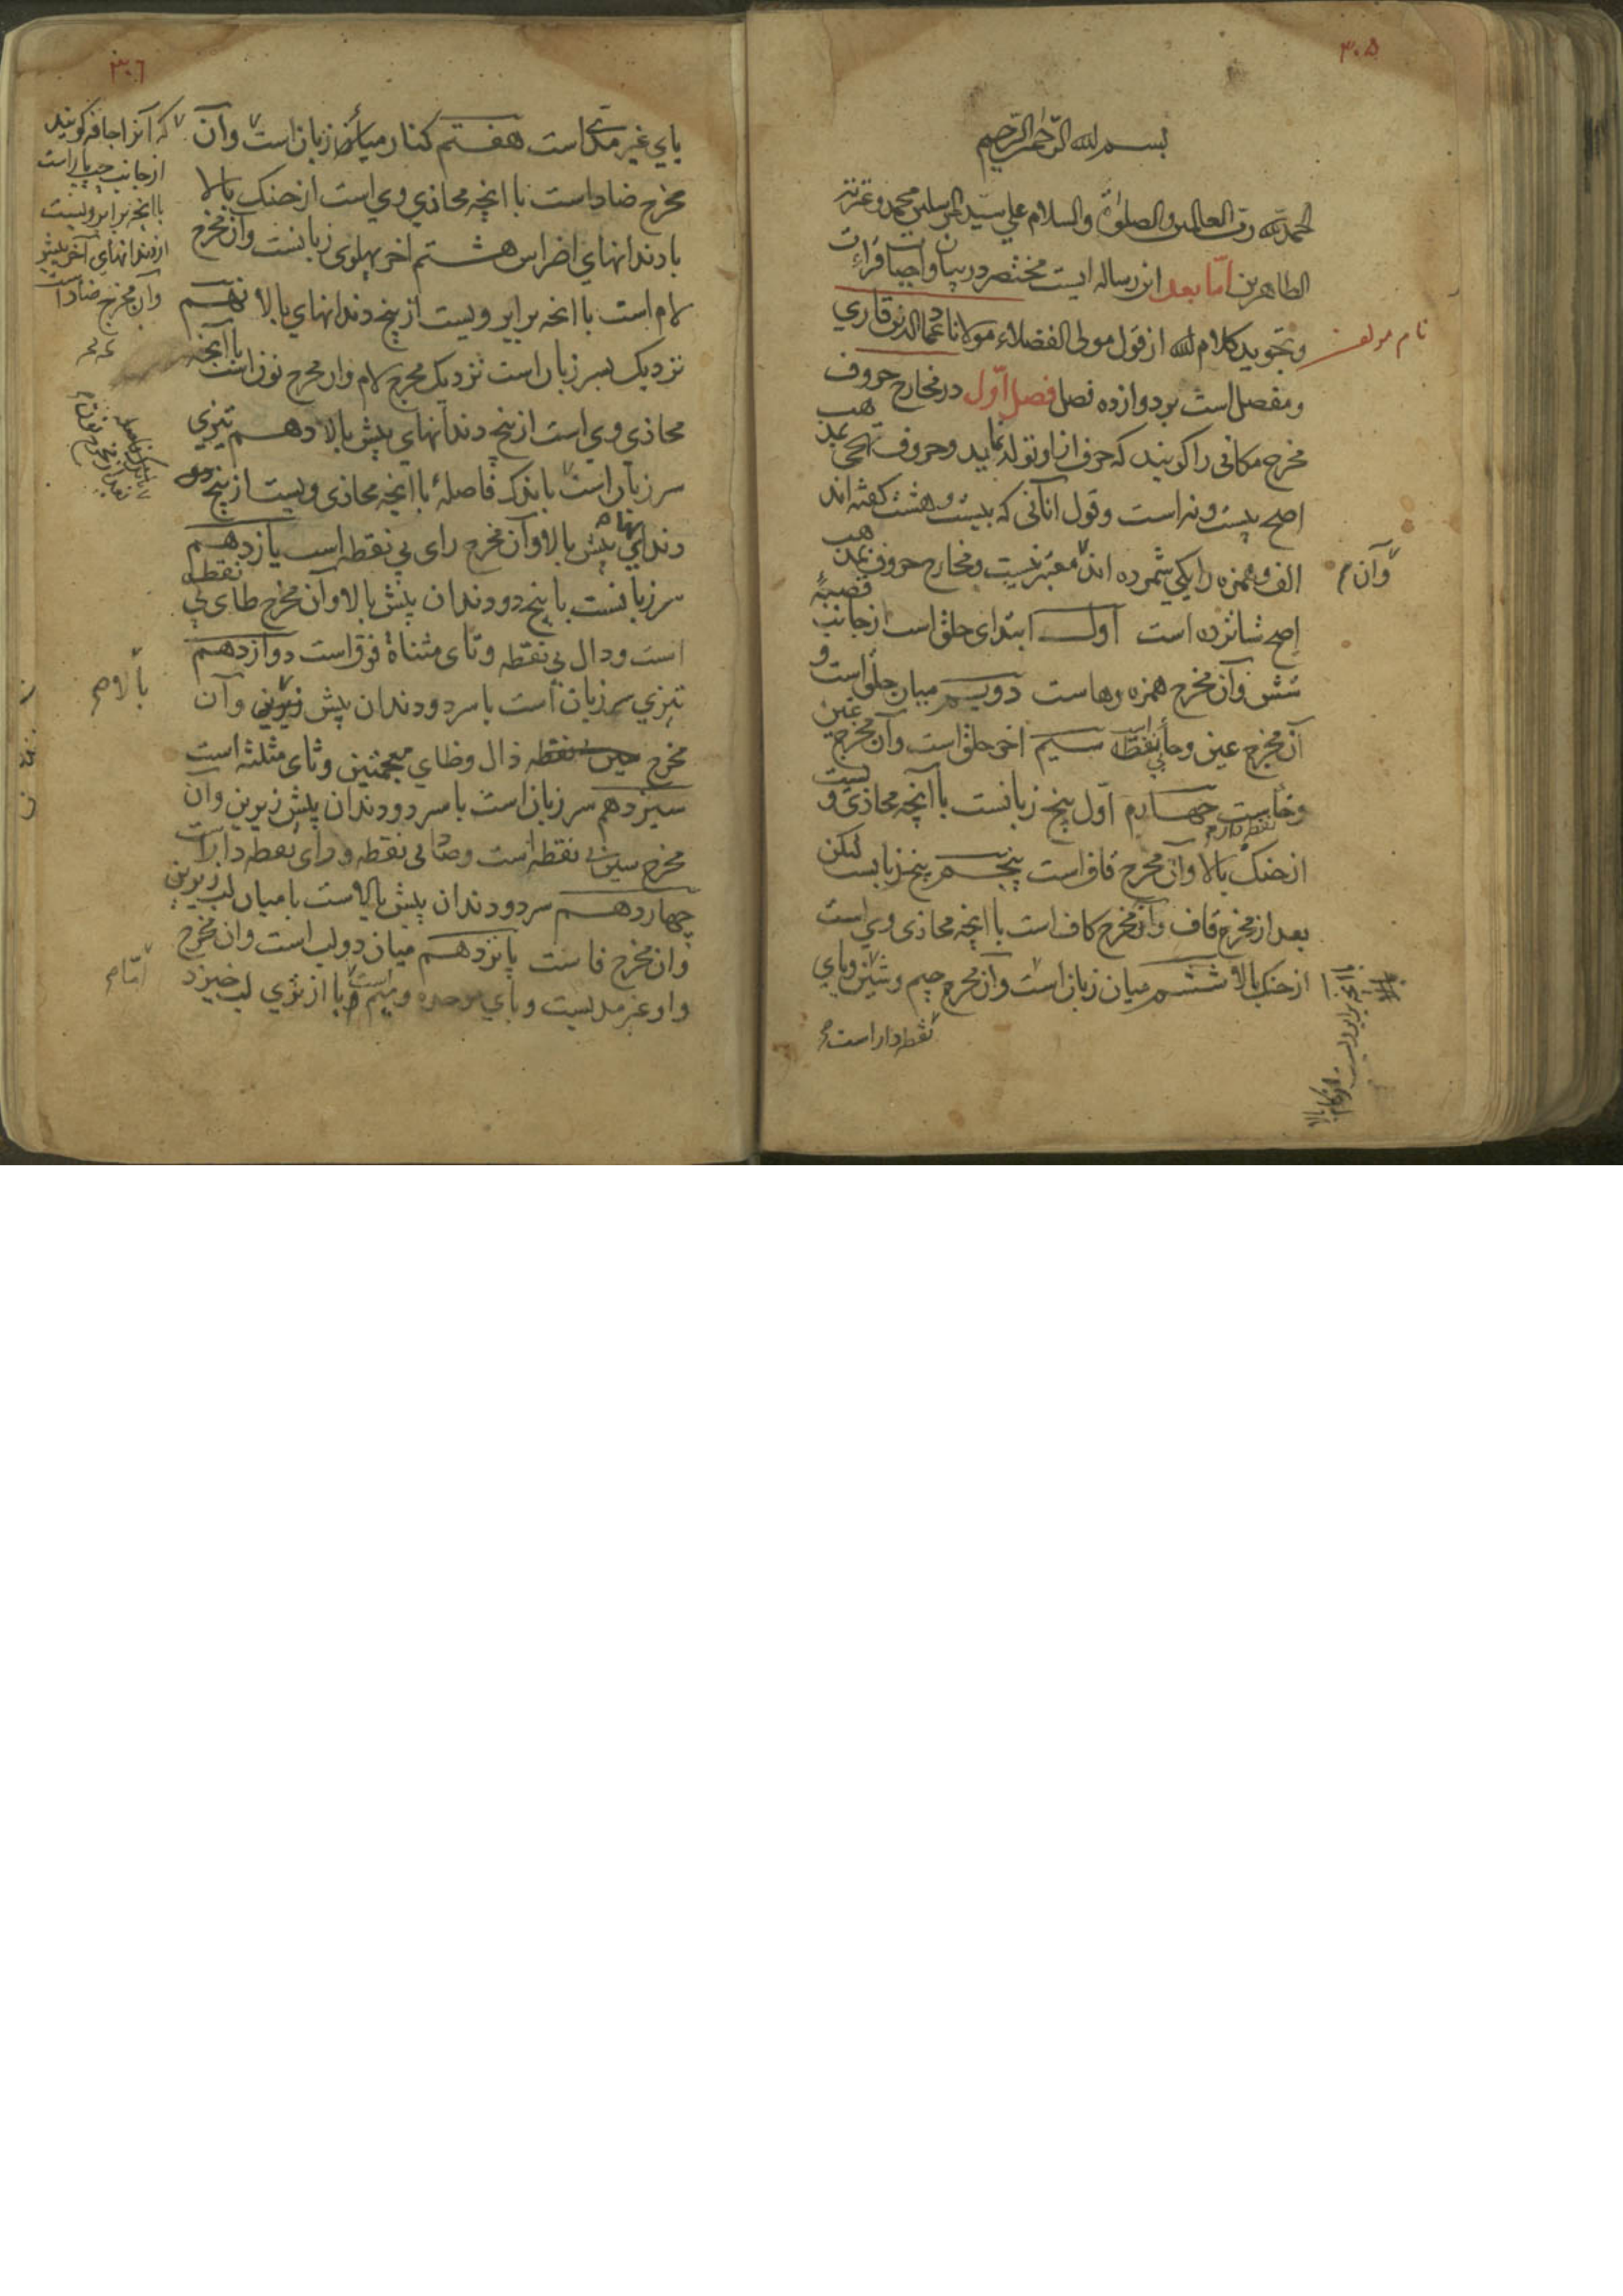 ۳۰۵
بسم الله الرحمن الرحیم
الحمد لله رب العالمین والصلوة والسلام علی سید المرسلین محمد وعترته
الطاهرین اما بعد این رساله ایست مختصر در بیان واجبات قراءت
وتجوید کلام الله از قول مولی الفضلاء مولانا عماد الدین قاری
نام مولف
ومفصل است بر دوازده فصل فصل اول در مخارج حروف
مخرج مکانی را کویند که حرف از او تولد نماید وحروف تهجی بمذهب
اصح بیست ونه است وقول آنانی که بیست وهشت کفته اند
الف وهمزه را یکی شمرده اند معتبر نیست ومخارج حروف بمذهب
وآن
اصح شانزده است اول ابتدای حلق است از جانب قصبهٔ
شش وآن مخرج همزه وهاست دویم میان حلق است و
آن مخرج عین وحای بی نقطه است سیم آخر حلق است وآن مخرج غین
وخاست چهارم اول بیخ زبانست با آنچه محاذی ویست
نقطه دار
از حنک بالا وآن مخرج قاف است پنجم بیخ زبانست لیکن
بعد از مخرج قاف وآن مخرج کاف است با آنچه محاذی وی است
از حنک بالا ششم میان زبان است وآن مخرج جیم وشین ویای
نقطه دار است
۳۰٦
یای غیر مدی است هفتم کنار میان زبان است وآن
که آنرا حافه کویند
از جانب چپ یا راست
با آنچه برابر ویست
از دندانهای آخر بیشتر
وآن مخرج ضاد است
مخرج ضاد است با آنچه محاذی وی است از حنک بالا
با دندانهای اضراس هشتم آخر پهلوی زبانست وآن مخرج
لام است با آنچه برابر ویست از بیخ دندانهای بالا نهم
نزدیک بسر زبان است نزدیک مخرج لام وآن مخرج نون است با آنچه
محاذی وی است از بیخ دندانهای پیش بالا دهم تیزی
سر زبان است باندک فاصلهٔ با آنچه محاذی ویست از بیخ
دندانهای پیش بالا وآن مخرج رای بی نقطه است یازدهم
سر زبانست با بیخ دو دندان پیش بالا وآن مخرج طای بی نقطه
است ودال بی نقطه وتای مثناة فوق است دوازدهم
تیزی سر زبان است با سر دو دندان پیش زیرین وآن
بالا
مخرج ذال وظای معجمتین وثای مثلثه است
سیزدهم سر زبان است با سر دو دندان پیش زیرین وآن
مخرج سین بی نقطه است وصاد بی نقطه وزای نقطه دار است
چهاردهم سر دو دندان پیش بالاست با میان لب زیرین
وآن مخرج فاست پانزدهم میان دو لب است وآن مخرج
واو غیر مدیست وبای موحده ومیم است با از تری لب خیزد
اما